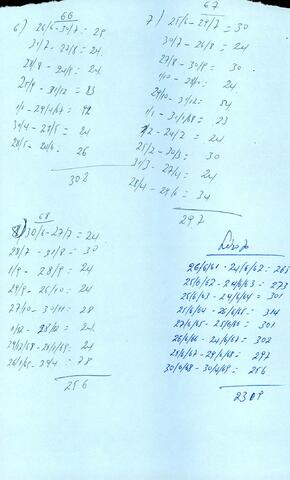 66
6) 26/6 - 30/7 = 28
31/7 - 27/8 = 24
28/8 - 24/9 = 24
25/9 - 31/12 = 83
1/1 - 29/4/67 = 92
30/4 - 27/5 = 24
28/5 - 26/6: 26
302
67
7) 25/6 - 29/7 = 30
30/7 - 26/8 = 24
27/8 - 30/9 = 30
1/10 - 28/10: 24
29/10 - 31/12: 54
1/1 - 30/1/68 = 23
- 24/2 = 24
25/2 - 30/3: 30
31/3 - 27/4: 24
28/4 - 29/6: 34
297
68
8) 30/6 - 27/7 = 24
28/7 - 31/8 = 30
1/9 - 28/9: 24
29/9 - 26/10: 24
27/10 - 30/11: 28
1/12 - 28/12: 24
24
26/1/69 - : 78
256
26/6/61 - 24/6/62 = 285
25/6/62 - 24/6/63 = 273
25/6/63 - 24/6/64 = 301
25/6/64 - 26/6/65: 314
27/6/65 - 25/6/66: 301
26/6/66 - 24/6/67: 302
25/6/67 - 29/6/68 = 297
30/6/68 - 30/4/69: 256
2309